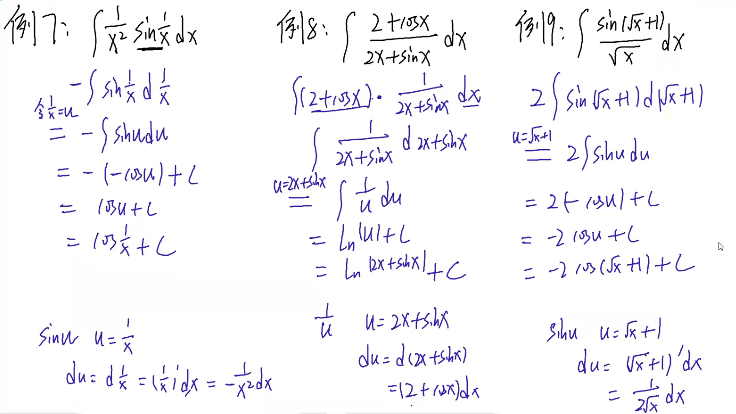 例7: ∫ 1/x² sin 1/x dx
-∫ sin 1/x d 1/x
令 1/x = u
= -∫ sinu du
= -(-cosu) + C
= cosu + C
= cos 1/x + C
sinu u = 1/x
du = d 1/x = (1/x)' dx = -1/x² dx
例8: ∫ (2+cosx)/(2x+sinx) dx
∫(2+cosx) · 1/(2x+sinx) dx
∫ 1/(2x+sinx) d 2x+sinx
u=2x+sinx
= ∫ 1/u du
= Ln|u| + C
= Ln|2x+sinx| + C
1/u u = 2x+sinx
du = d(2x+sinx)
= (2+cosx)dx
例9: ∫ sin(√x+1)/√x dx
2∫ sin(√x+1) d(√x+1)
u=√x+1
= 2∫ sinu du
= 2(-cosu) + C
= -2cosu + C
= -2cos(√x+1) + C
sinu u = √x+1
du = (√x+1)' dx
= 1/(2√x) dx